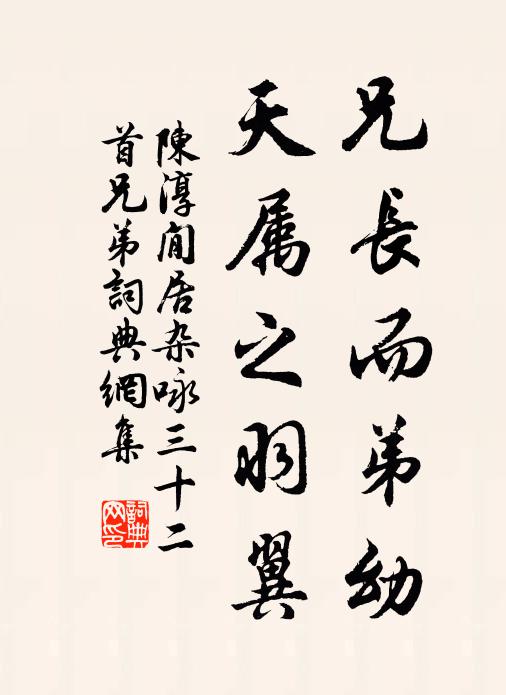 兄長而弟幼
天属之羽翼
陳淳闲居杂咏三十二
首兄弟詞典網集
詞典网印